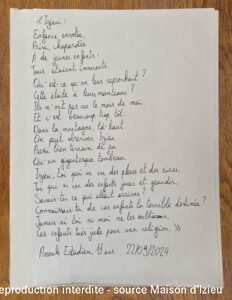 « Izieu :
Enfance envolée,
Privée, chapardée
A de jeunes enfants :
Tous étaient innocents.
Qu'est ce qu'on leur reprochait ?
Cette étoile à leur manteau ?
Ils n'ont pas vu le mois de mai
Et c'est beaucoup trop tôt.
Dans la montagne, là-haut
On peut observer Izieu
Aussi bien terrain de jeu
Qu'un gigantesque tombeau.
Izieu, toi qui as vu des pleurs et des rires,
Toi qui as vu des enfants jouer et grandir,
Savais-tu ce qui allait arriver ?
Connaissais-tu de ces enfants la terrible destinée ?
Jamais ni toi ni moi ne les oublierons,
Ces enfants tués juste pour une religion. »
Anouk Estadieu, 11 ans 22/09/2024
eproduction interdite - source Maison d'Izieu